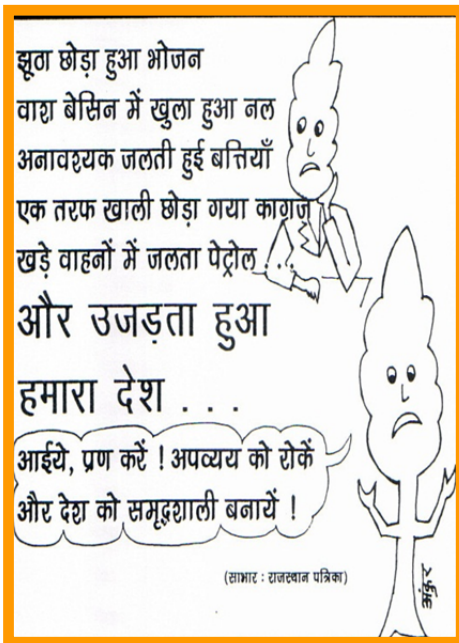 झूठा छोड़ा हुआ भोजन
वाश बेसिन में खुला हुआ नल
अनावश्यक जलती हुई बत्तियाँ
एक तरफ खाली छोड़ा गया कागज
खड़े वाहनों में जलता पेट्रोल . . .
और उजड़ता हुआ
हमारा देश . . .
आईये, प्रण करें ! अपव्यय को रोकें
और देश को समृद्धशाली बनायें !
(साभार : राजस्थान पत्रिका)
अंकुर